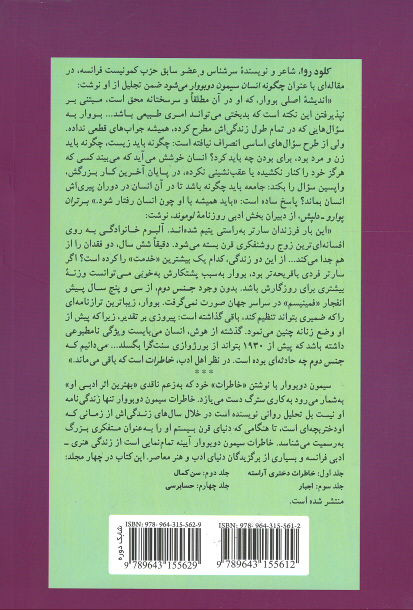 کلود روا، شاعر و نویسندهٔ سرشناس و عضو سابق حزب کمونیست فرانسه، در
مقاله‌ای با عنوان چگونه انسان سیمون دوبووار می‌شود ضمن تجلیل از او نوشت:
«اندیشهٔ اصلی بووار، که او در آن مطلقاً و سرسختانه محق است، مبتنی بر
نپذیرفتن این نکته است که بدبختی می‌تواند امری طبیعی باشد... بووار به
سؤال‌هایی که در تمام طول زندگی‌اش مطرح کرده، همیشه جواب‌های قطعی نداده.
ولی از طرح سؤال‌های اساسی انصراف نیافته است: چگونه باید زیست، چگونه باید
زن و مرد بود، برای بودن چه باید کرد؟ انسان خوشش می‌آید که می‌بیند کسی که
هرگز خود را کنار نکشیده یا عقب‌نشینی نکرده، در پایان آخرین کار بزرگش،
واپسین سؤال را بکند: جامعه باید چگونه باشد تا در آن انسان در دوران پیری‌اش
انسان بماند؟ پاسخ ساده است: «باید همیشه با او چون انسان رفتار شود.» برتران
پوارو ـ دلپش، از دبیران بخش ادبی روزنامهٔ لوموند، نوشت:
«این بار فرزندان سارتر به‌راستی یتیم شده‌اند. آلبوم خانوادگی به روی
افسانه‌ای‌ترین زوج روشنفکری قرن بسته می‌شود. دقیقاً شش سال، دو فقدان را از
هم جدا می‌کند... از این دو زندگی، کدام یک بیشترین «خدمت» را کرده است؟ اگر
سارتر فردی باقریحه‌تر بود، بووار به‌سبب پشتکارش به‌خوبی می‌توانست وزنهٔ
بیشتری برای روزگارش باشد. بدون وجود جنس دوم، از سی و پنج سال پیش
انفجار «فمینیسم» در سراسر جهان صورت نمی‌گرفت. بووار، زیباترین ترازنامه‌ای
را که ضمیری بتواند تنظیم کند، باقی گذاشته است: پیروزی بر تقدیر، زیرا که پیش از
او وضع زنانه چنین می‌نمود. گذشته از هوش، انسان می‌بایست ویژگی نامطبوعی
داشته باشد که پیش از ۱۹۳۰ بتواند از بورژوازی سنت‌گرا بگسلد... می‌دانیم که
جنس دوم چه حادثه‌ای بوده است. در نظر اهل ادب، خاطرات است که باقی می‌ماند.»
* * *
سیمون دوبووار با نوشتن «خاطرات» خود که به‌زعم ناقدی «بهترین اثر ادبی او»
به‌شمار می‌رود به کاری سترگ دست می‌یازد. خاطرات سیمون دوبووار تنها زندگی‌نامه
او نیست بل تحلیل روانی نویسنده است در خلال سال‌های زندگی‌اش از زمانی که
او دختربچه‌ای است، تا هنگامی که دنیای قرن بیستم او را به‌عنوان متفکری بزرگ
به‌رسمیت می‌شناسد. خاطرات سیمون دوبووار آیینه تمام‌نمایی است از زندگی هنری ـ
ادبی فرانسه و بسیاری از برگزیدگان دنیای ادب و هنر معاصر. این کتاب در چهار مجلد:
جلد اول: خاطرات دختری آراسته جلد دوم: سن کمال
جلد سوم: اجبار جلد چهارم: حسابرسی
منتشر شده است.
شابک دوره
ISBN: 978- 964-315-562-9 ISBN: 978- 964-315-561-2
9 789643 155629 9 789643 155612